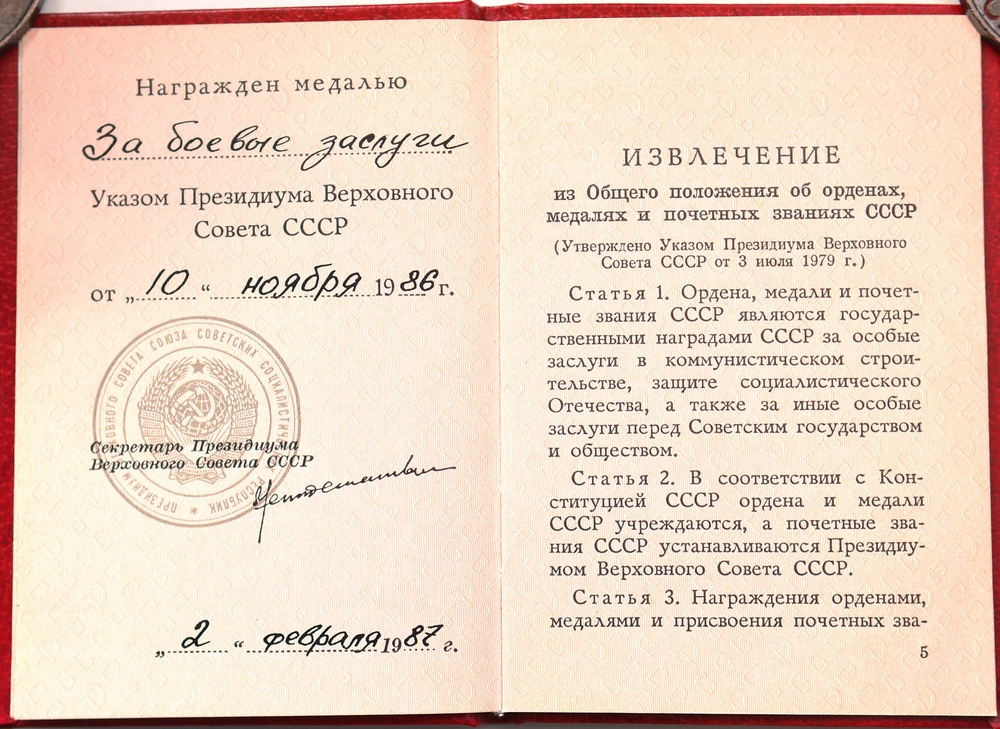 Награжден медалью
За боевые заслуги
Указом Президиума Верховного
Совета СССР
от „10“ ноября 1986 г.
ПРЕЗИДИУМ ВЕРХОВНОГО СОВЕТА СОЮЗА СОВЕТСКИХ СОЦИАЛИСТИЧЕСКИХ РЕСПУБЛИК *
Секретарь Президиума
Верховного Совета СССР
„2“ февраля 1987 г.
ИЗВЛЕЧЕНИЕ
из Общего положения об орденах,
медалях и почетных званиях СССР
(Утверждено Указом Президиума Верховного
Совета СССР от 3 июля 1979 г.)
Статья 1. Ордена, медали и почет-
ные звания СССР являются государ-
ственными наградами СССР за особые
заслуги в коммунистическом строи-
тельстве, защите социалистического
Отечества, а также за иные особые
заслуги перед Советским государством
и обществом.
Статья 2. В соответствии с Кон-
ституцией СССР ордена и медали
СССР учреждаются, а почетные зва-
ния СССР устанавливаются Президиу-
мом Верховного Совета СССР.
Статья 3. Награждения орденами,
медалями и присвоения почетных зва-
5